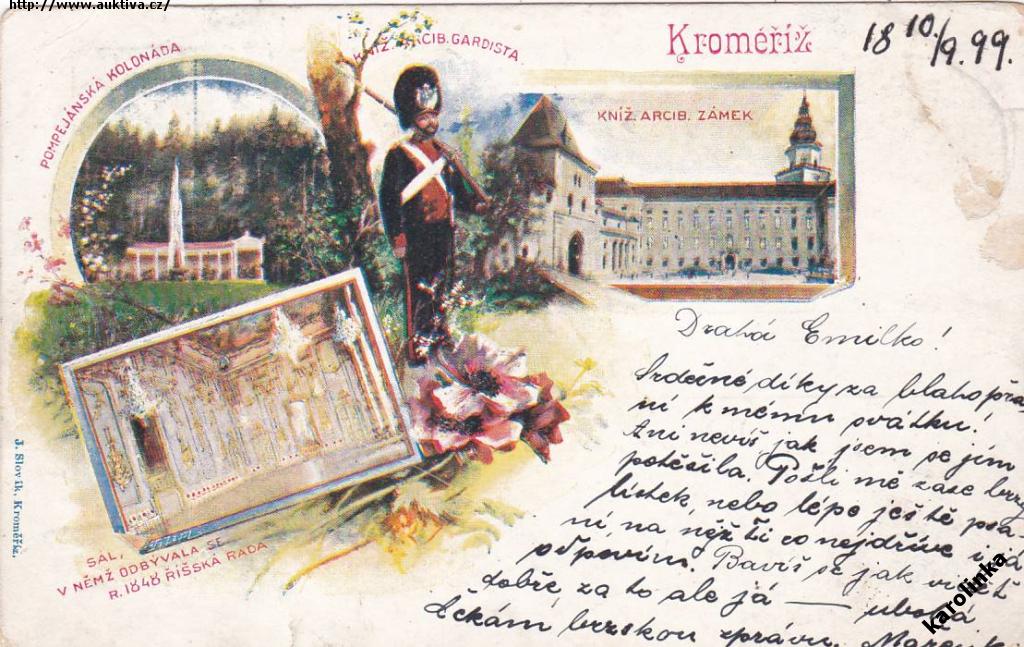 http://www.auktiva.cz/
POMPEJÁNSKÁ KOLONÁDA
KNÍŽ. ARCIB. GARDISTA
Kroměříž
18 10./9. 99.
KNÍŽ. ARCIB. ZÁMEK
Drahá Emilko!
Srdečné díky za blahopřá-
ní k mému svátku!
Ani nevíš jak jsem se jím
potěšila. Pošli mě zase brzy
lístek, nebo lépe ještě psa-
ní, na něž ti co nejdříve i já
odpovím. Bavíš se jak vidět
dobře, za to ale já — ubohá
Čekám brzkou zprávu.
SÁL,
V NĚMŽ ODBÝVALA SE
R. 1848 ŘÍŠSKÁ RADA
J. Slovík, Kroměříž.
karolinka